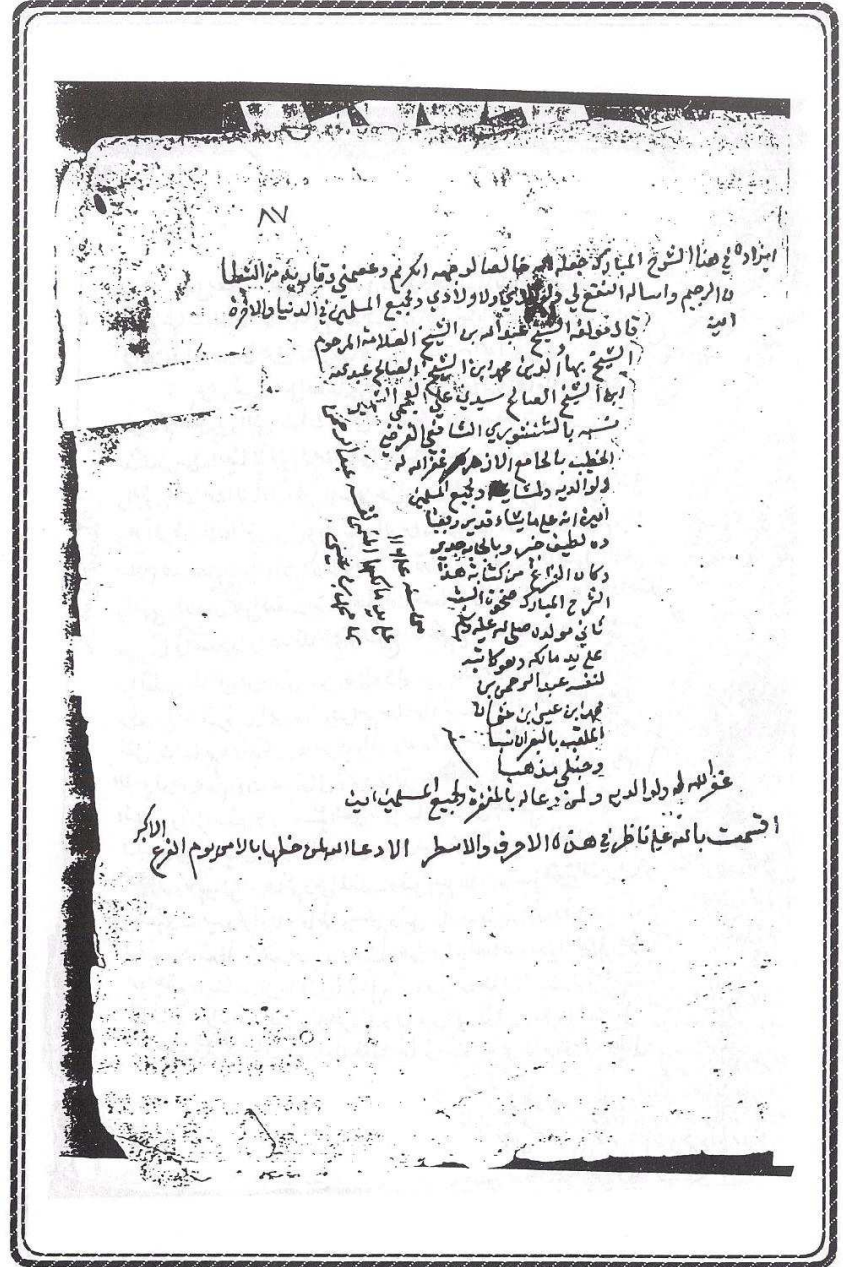 ٨٧
ايراده في هذا الشرح المبارك جعله الله خالصا لوجهه الكريم وعصمني وقاريه من الشيطا
ن الرجيم واساله النفع لي ولاولادي ولجميع المسلمين في الدنيا والاخرة
امين
قال مولفه الشيخ عبد الله بن الشيخ العلامة المرحوم
الشيخ بهاالدين محمد ابن الشيخ الصالح عبد الله
ابن الشيخ الصالح سيدي علي العجمي الشهير
نسبه بالشنشوري الشافعي الفرضي
الخطيب بالجامع الازهر غفر الله له
ولوالديه ولمشايخه ولجميع المسلمين
امين انه على ما يشاء قدير وبعبا
ده لطيف خبير وبالاجابه جدير
وكان الفراغ من كتابة هذا
الشرح المبارك ضحوة
ثاني مولده صلى الله عليه وسلم
على يد مالكه وهو كاتبه
لنفسه عبد الرحمن بن
محمد ابن عيسى ابن
الملقب نسبا
وحنبلي مذهبا
غفر الله له ولوالديه ولمن دعا له بالمغفرة ولجميع المسلمين امين
اقسمت بالله على ناظر في هذه الاحرف والاسطر الا دعا الله لمن خطها بالامن يوم الفزع الاكبر
على يد مالكها
لنفسه عبد الرحمن